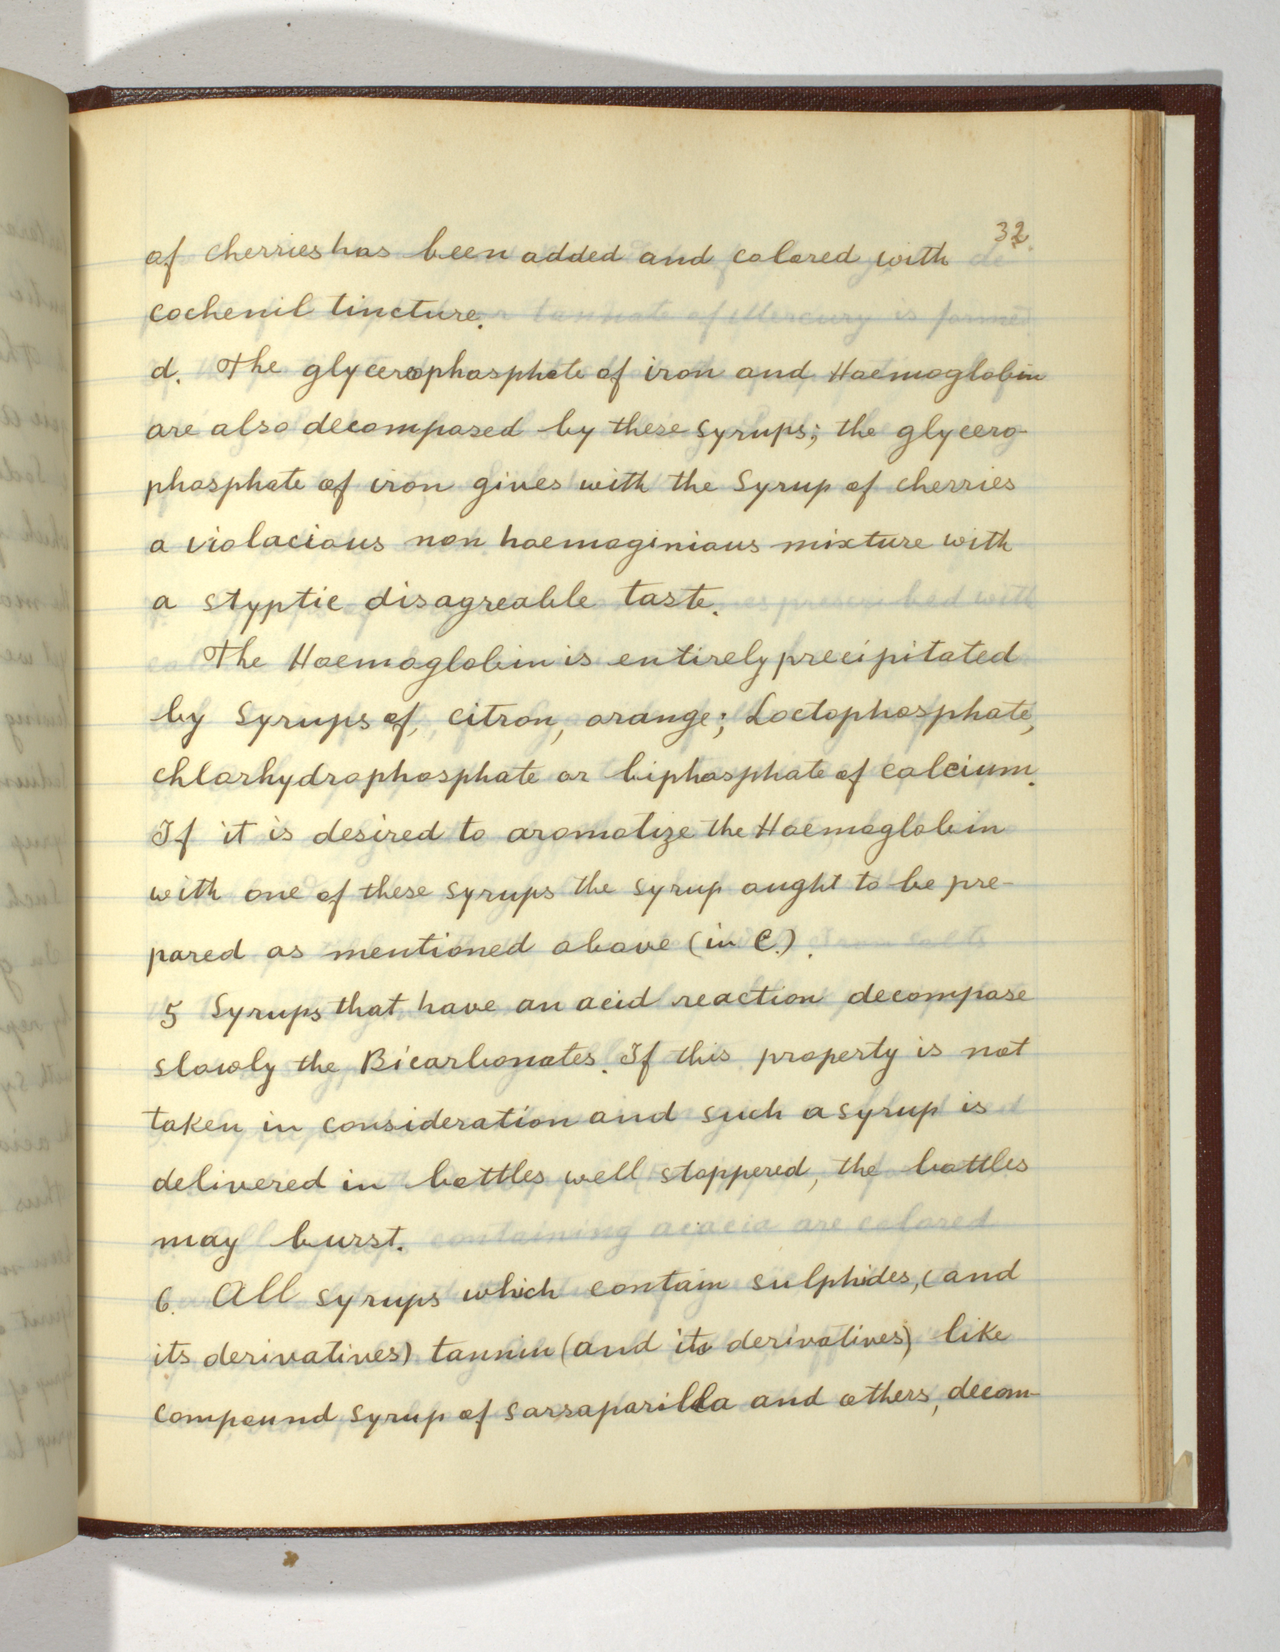 32
of cherries has been added and colored with
cochenil tincture.
d. The glycerophosphate of iron and Haemoglobin
are also decomposed by these syrups; the glycero-
phosphate of iron gives with the Syrup of cherries
a violacious non haemoginious mixture with
a styptic disagreable taste.
The Haemoglobin is entirely precipitated
by Syrups of, citron, orange; Loctophosphate,
chlorhydrophosphate or biphosphate of calcium.
If it is desired to aromatize the Haemoglobin
with one of these syrups the syrup ought to be pre-
pared as mentioned above (in C.).
5 Syrups that have an acid reaction decompose
slowly the Bicarbonates. If this property is not
taken in consideration and such a syrup is
delivered in bottles well stoppered, the bottles
may burst.
6. All syrups which contain sulphides, (and
its derivatives) tannin (and its derivatives) like
compound syrup of sarsaparilla and others, decom-